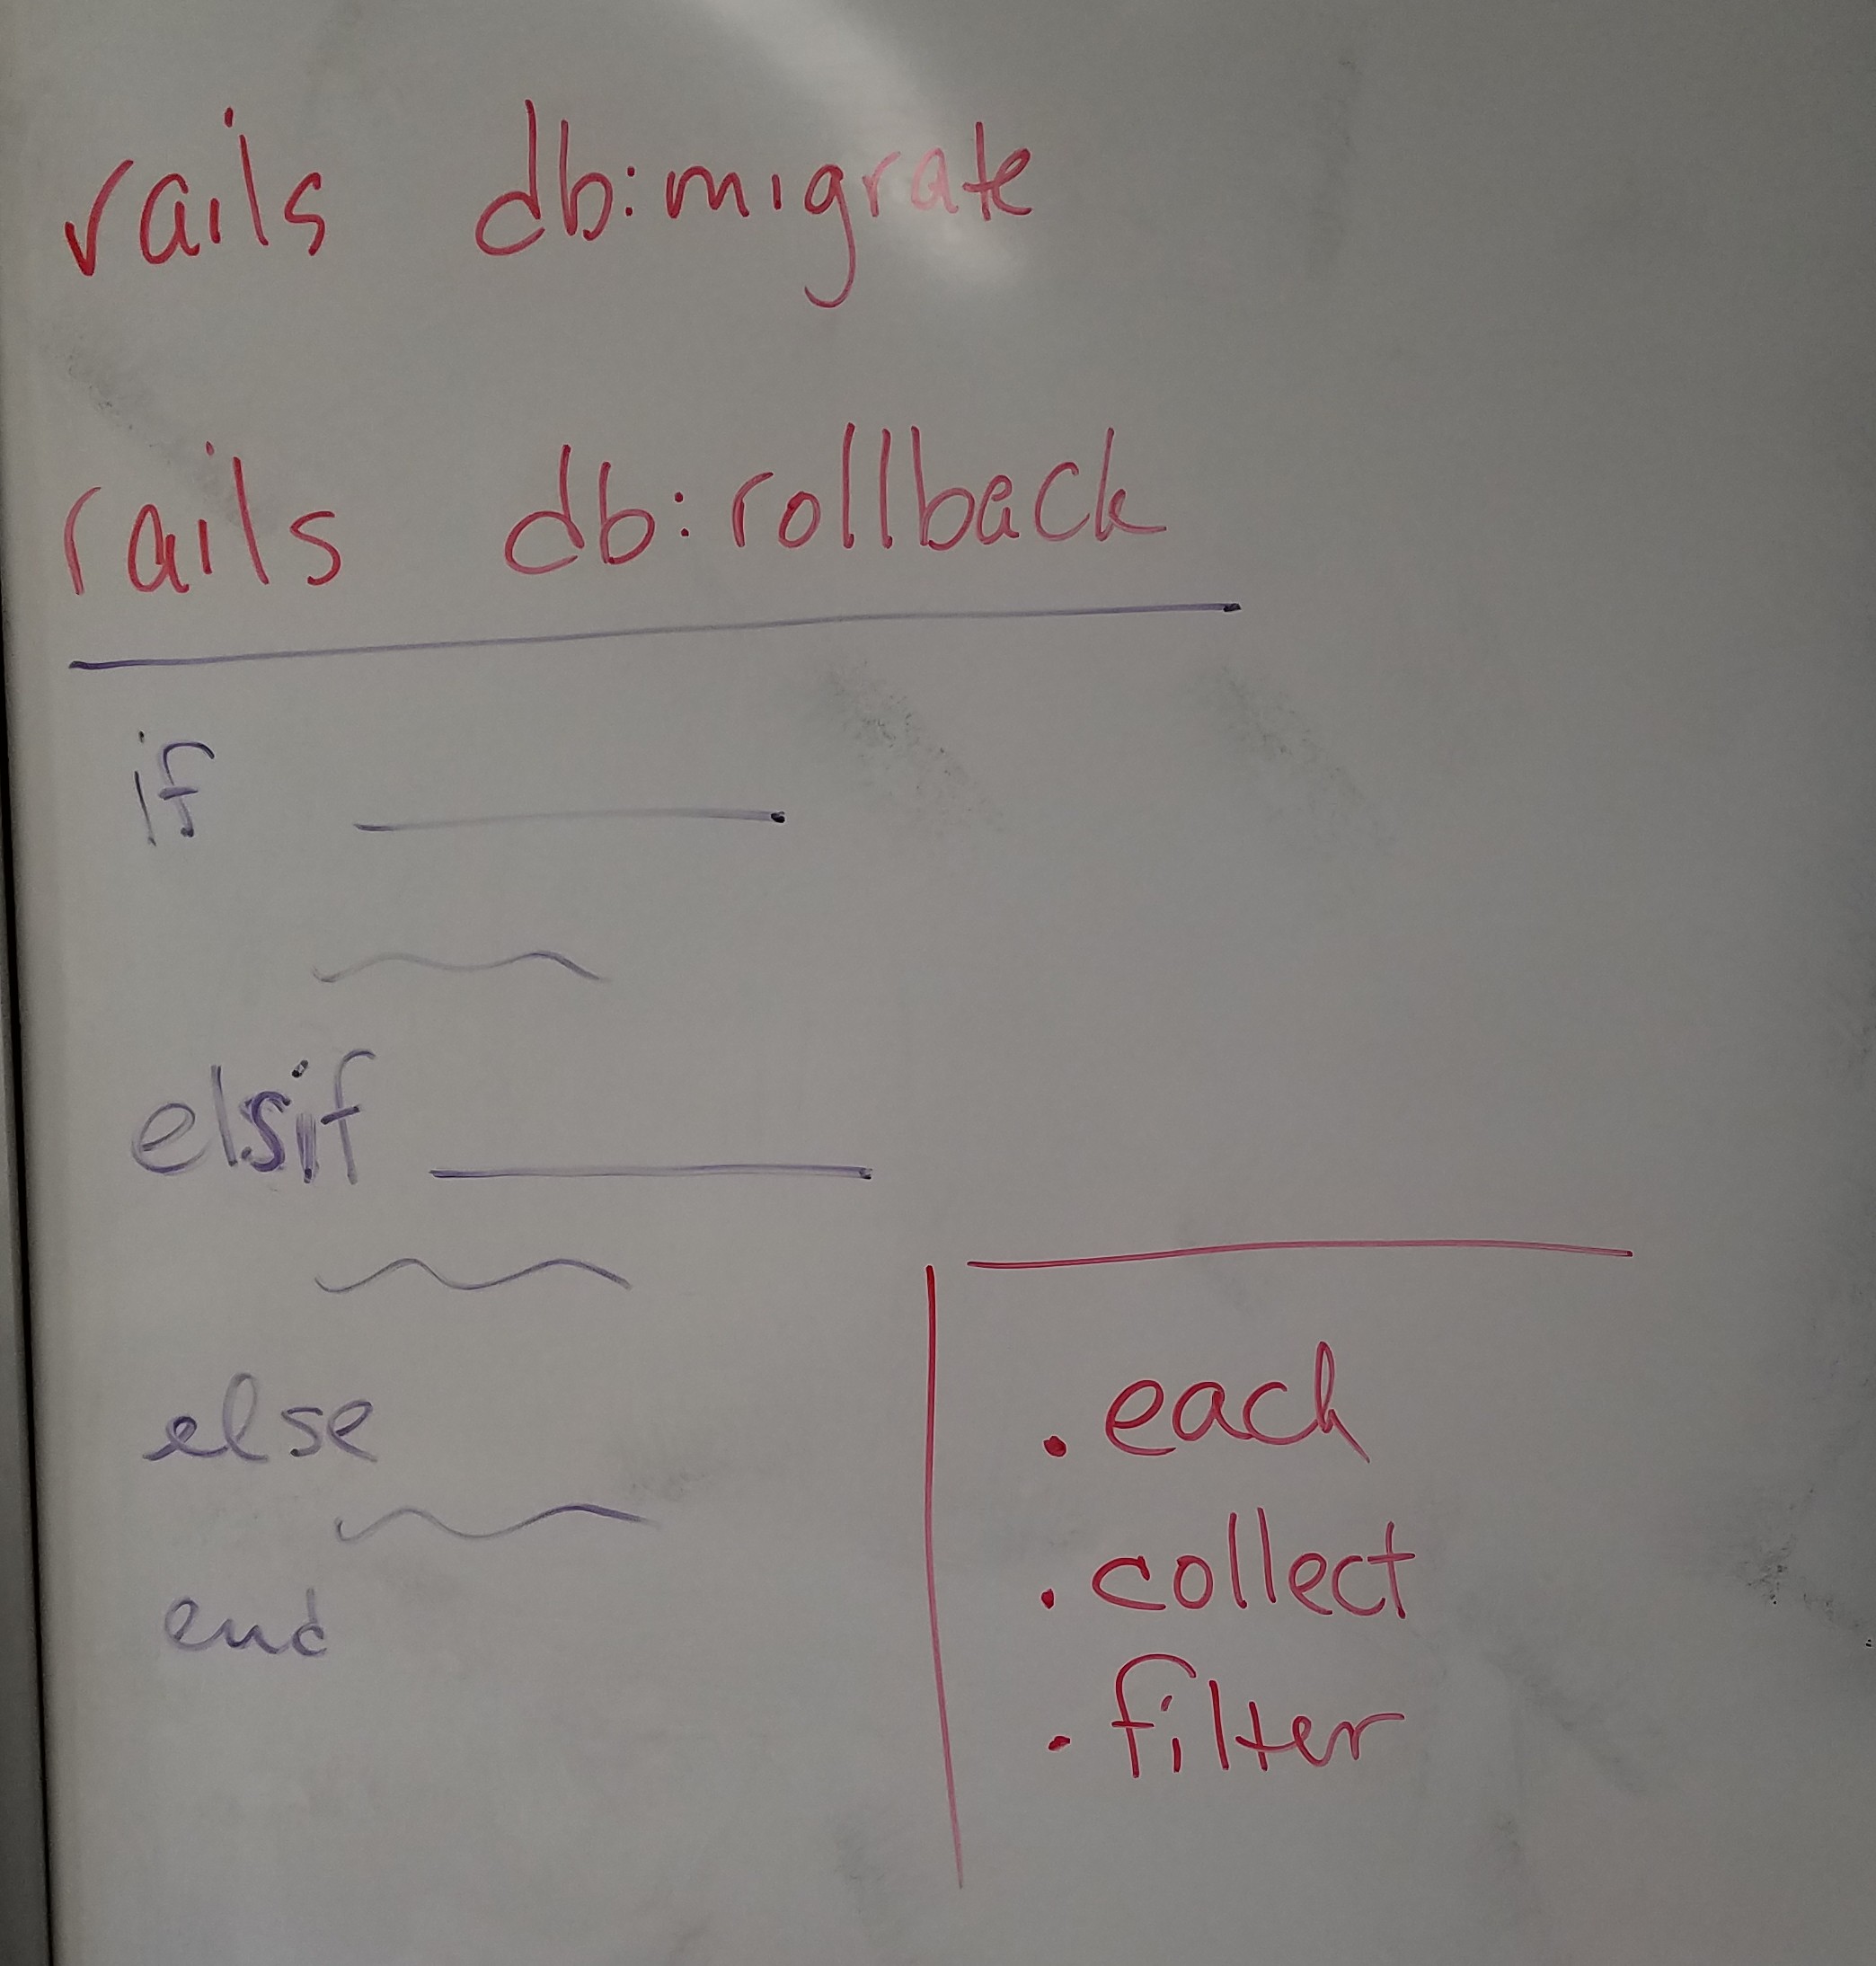 rails db:migrate
rails db:rollback
if
elsif
else
end
.each
.collect
.filter